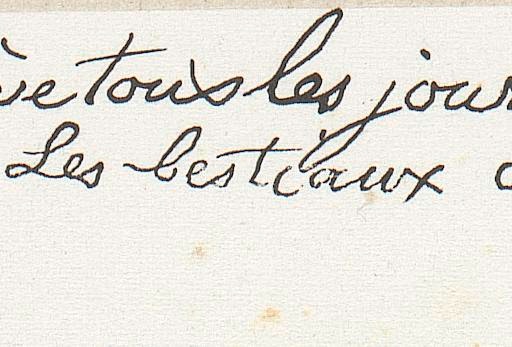 ève tous les jour
Les bestiaux